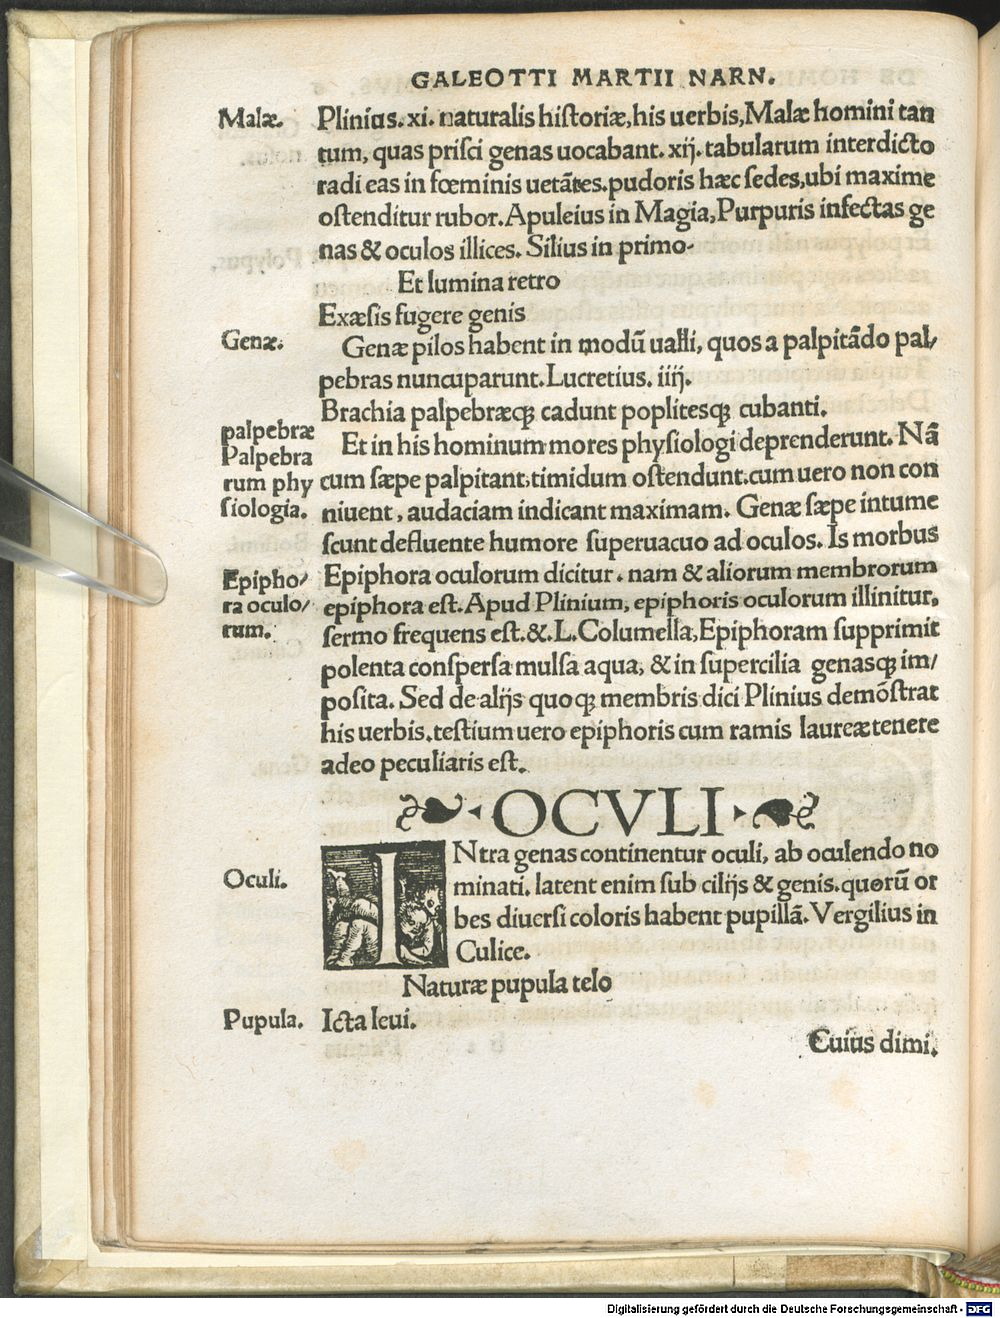 GALEOTTI MARTII NARN.
Malæ.
Plinius. xi. naturalis historiæ, his uerbis, Malæ homini tan
tum, quas prisci genas uocabant. xij. tabularum interdicto
radi eas in fœminis uetātes. pudoris hæc sedes, ubi maxime
ostenditur rubor. Apuleius in Magia, Purpuris infectas ge
nas & oculos illices. Silius in primo.
Et lumina retro
Exæsis fugere genis
Genæ.
Genæ pilos habent in modū ualli, quos a palpitādo pal/
pebras nuncuparunt. Lucretius. iiij.
Brachia palpebræq; cadunt poplitesq; cubanti.
palpebræ
Palpebra
rum phy
siologia.
Et in his hominum mores physiologi deprenderunt. Nā
cum sæpe palpitant, timidum ostendunt. cum uero non con
niuent, audaciam indicant maximam. Genæ sæpe intume
scunt defluente humore superuacuo ad oculos. Is morbus
Epipho/
ra oculo/
rum.
Epiphora oculorum dicitur. nam & aliorum membrorum
epiphora est. Apud Plinium, epiphoris oculorum illinitur,
sermo frequens est. &. L. Columella, Epiphoram supprimit
polenta conspersa mulsa aqua, & in supercilia genasq; im/
posita. Sed de alijs quoq; membris dici Plinius demōstrat
his uerbis. testium uero epiphoris cum ramis laureæ tenere
adeo peculiaris est.
OCVLI
Oculi.
INtra genas continentur oculi, ab oculendo no
minati. latent enim sub cilijs & genis. quorū or
bes diuersi coloris habent pupillā. Vergilius in
Culice.
Naturæ pupula telo
Pupula.
Icta leui.
Cuius dimi.
Digitalisierung gefördert durch die Deutsche Forschungsgemeinschaft - DFG